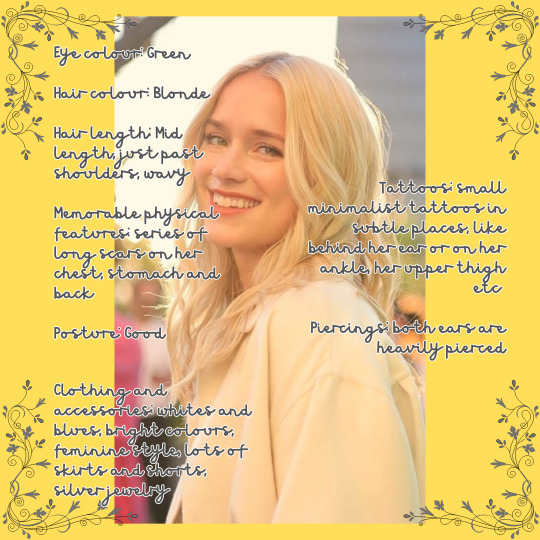 Eye colour: Green
Hair colour: Blonde
Hair length: Mid
length, just past
shoulders, wavy
Memorable physical
features: series of
long scars on her
chest, stomach and
back
Posture: Good
Clothing and
accessories: whites and
blues, bright colours,
feminine style, lots of
skirts and shorts,
silver jewelry
Tattoos: small
minimalist tattoos in
subtle places, like
behind her ear or on her
ankle, her upper thigh
etc
Piercings: both ears are
heavily pierced